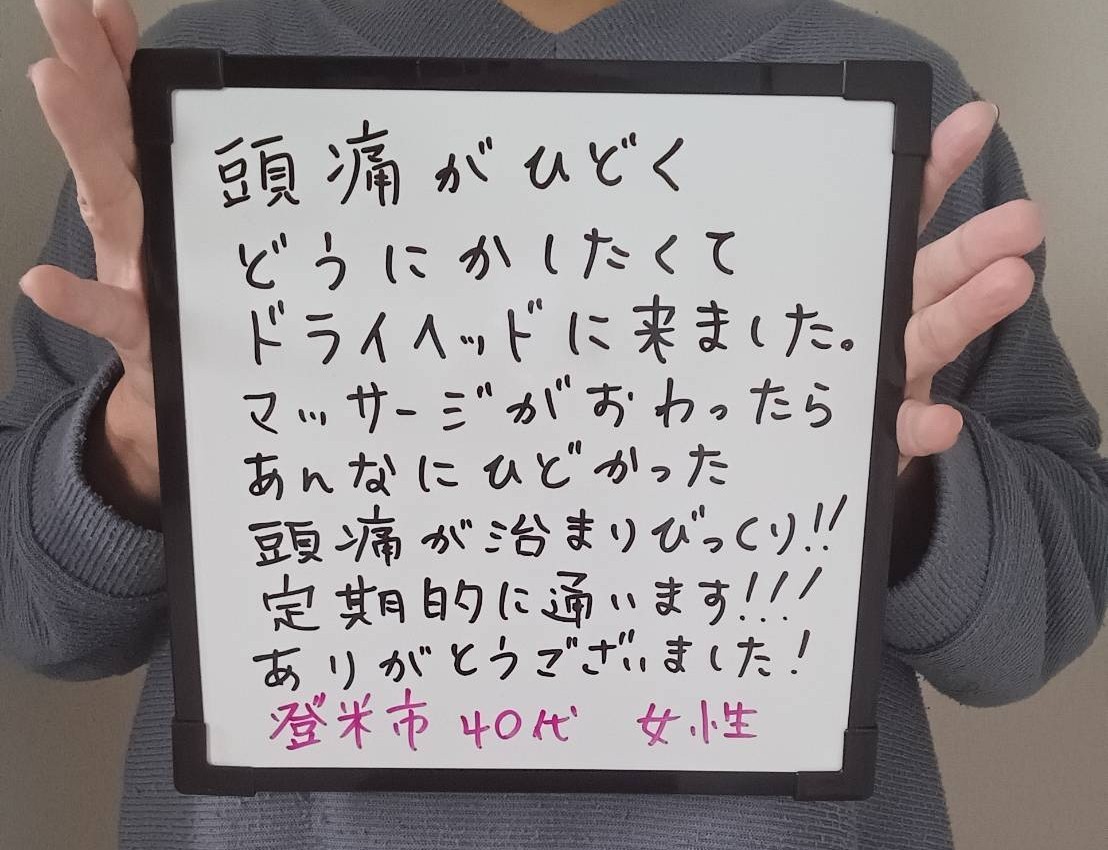 頭痛がひどく
どうにかしたくて
ドライヘッドに来ました。
マッサージがおわったら
あんなにひどかった
頭痛が治まりびっくり!!
定期的に通います!!!
ありがとうございました!
登米市 40代 女性